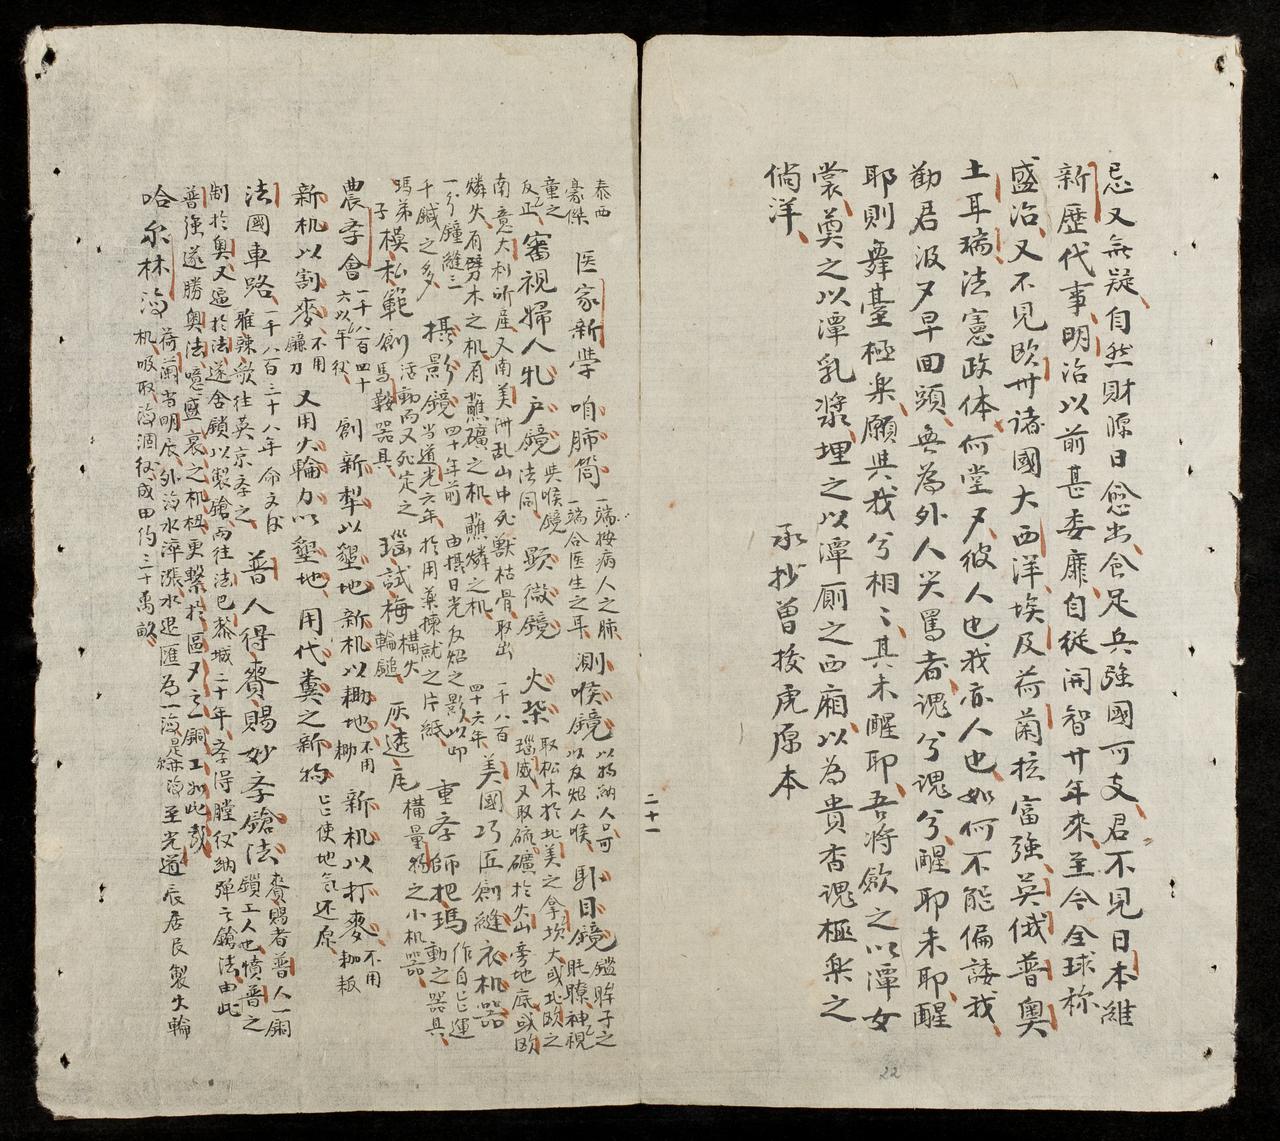 忌又無疑自然財源日愈出食足兵強國可支君不見日本維
新歷代事明治以前甚委靡自從開智廿年來至今全球称
盛治又不見欧卅諸國大西洋埃及荷蘭拉富強英俄普奧
土耳瑞法憲政体何堂〻彼人也我亦人也如何不能偏諉我
勸君汲〻早回頭無為外人笑罵者魂兮魂兮醒耶未耶醒
耶則舞臺極楽願與我兮相〻其未醒耶吾將斂之以潭女
裳奠之以潭乳漿埋之以潭厠之西廂以為貴香魂極楽之
倘洋
承抄曾拔虎原本
二十一
泰西豪傑 医家新學 咱肺筒 一端按病人之肺一端合医生之耳 測喉鏡 以物納人口可以反炤人喉 馭目鏡 鑑眸子之眊瞭神視
童之反正 審視婦人牝户鏡 與喉鏡法同 顕微鏡 火柴 取松木於北美之拿坎大或北欧之瑙威又取硫礦於火山旁地底或欧
南意大利所産又南美洲乱山中死獸枯骨取出
燐火有劈木之机有蘸礦之机蘸燐之机 千八百四十六年 美國巧匠創縫衣机器
一分鐘縫三千鍼之多 攝影鏡 四十年前由攝日光反炤之影以印當道光六年於用薬揀就之片紙 重孝師把瑪 作自己運動之器具
瑪弟子模私範創 活動而又死定之馬鞍器具 瑙試梅 構火輪鎚 灰透庇 構量物之小机器
農孝會 一千八百四十六以年伩 創新犁以墾地新机以耡地 不用耡 新机以打麥 不用枷板
新机以割麥 不用鐮刀 又用火輪力以墾地用代糞之新物 㠯使地氣还原
法國車路 一千八百三十八年命文伩雅辣歌往英京孝之 普人得賚賜妙孝鎗法 賚賜者普人一銅鎖工人也憤普之
制於奧又逼於法遂舍鎖以製鎗而往法巴黎城二十年孝得膛伩納弾之鎗法由此
普強遂勝奧法噫盛衰之机杻更繫於區〻之一銅工如此哉
哈尓林海 荷蘭當明辰外海水漲水退匯為一海是㝵海至光道辰居民製火輪机吸取海涸伩成田約三十萬畝
22